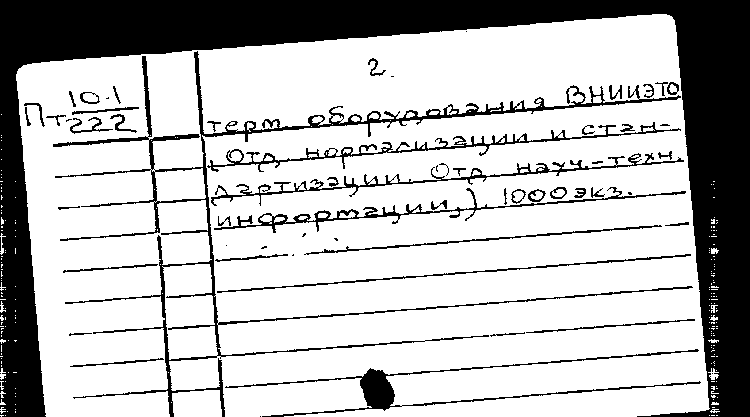 2.
Пт 10.1
222
терм оборудования ВНИИЭТО
(Отд нормализации и стан-
дартизации. Отд науч.-техн.
информации,). 1000 экз.